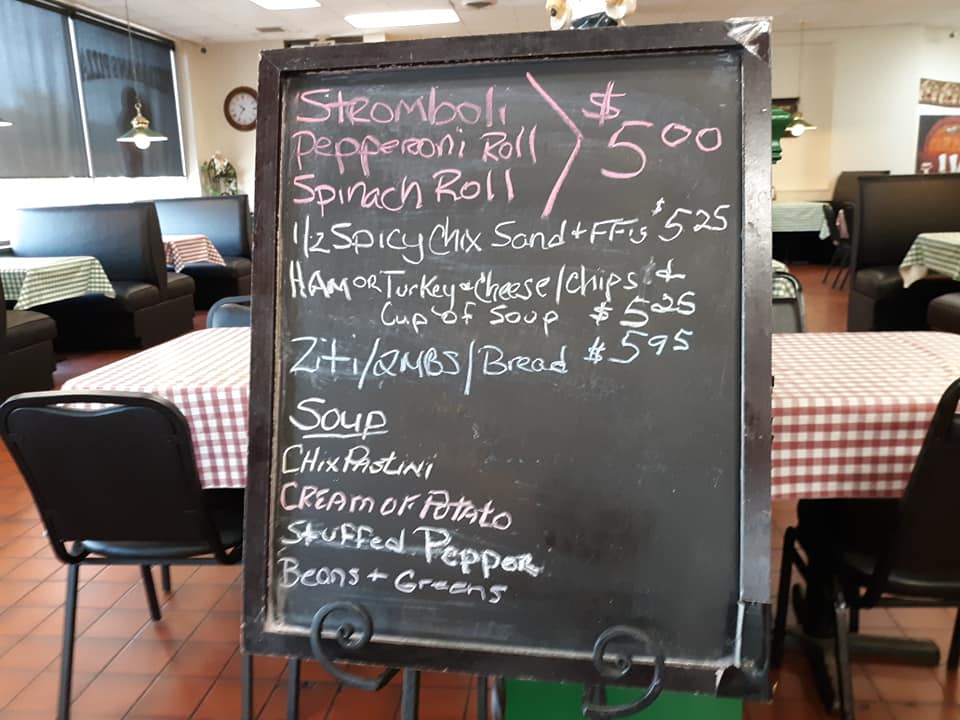 Stromboli
Pepperoni Roll
Spinach Roll
$5.00
1/2 Spicy Chix Sand + FFis $5 25
HAM OR Turkey & Cheese / Chips &
Cup of Soup $5 25
Ziti / 2MBS / Bread $5 95
Soup
CHIX PASTINI
CREAM OF POTATO
Stuffed Pepper
Beans + Greens